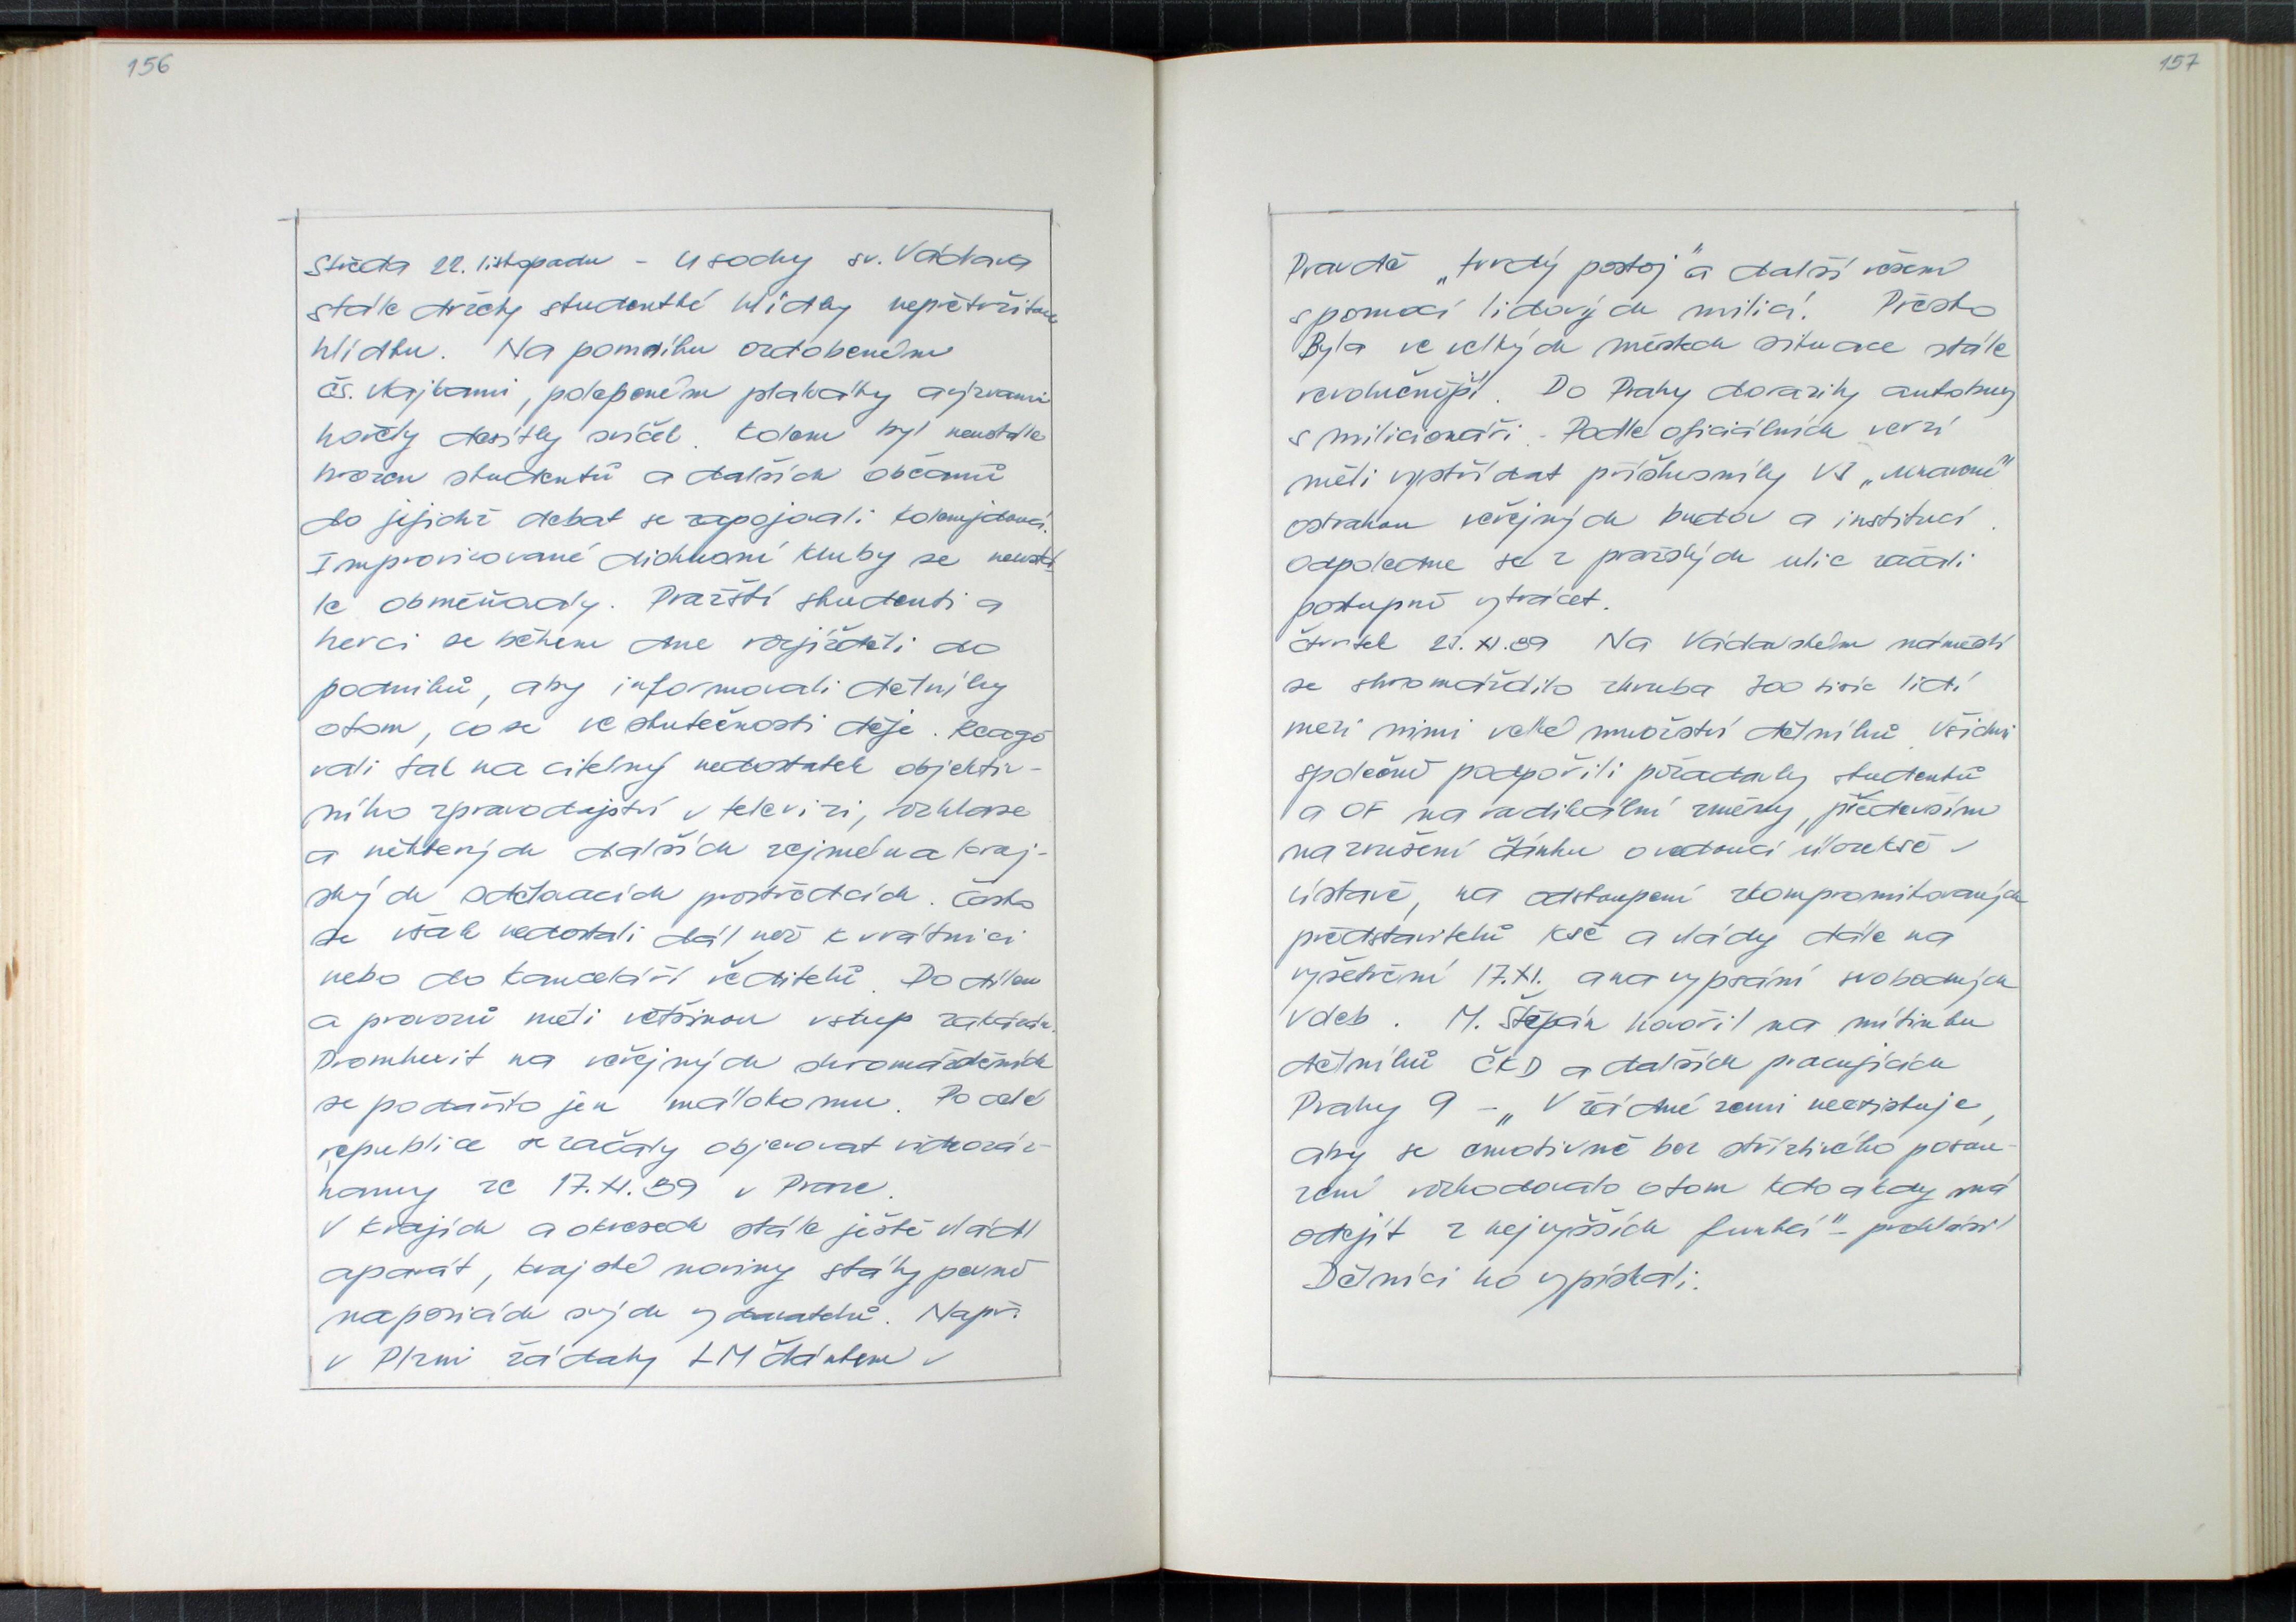 156
Středa 22. listopadu - U sochy sv. Václava
stále držely studentské hlídky nepřetržitou
hlídku. Na pomníku ozdobeném
čs. vlajkami, polepeném plakáty a výzvami
hořely desítky svíček. Kolem byl neustále
hrozen studentů a dalších občanů
do jejichž debat se zapojovali kolemjdoucí.
Improvizované diskusní kluby se neustá
le obměňovaly. Pražští studenti a
herci se během dne rozjížděli do
podniků, aby informovali dělníky
o tom, co se ve skutečnosti děje. Reago
vali tak na citelný nedostatek objektiv-
ního zpravodajství v televizi, rozhlase
a některých dalších zejména kraj-
ských sdělovacích prostředcích. Často
se však nedostali dál než k vrátnici
nebo do kanceláří ředitelů. Do dílen
a provozů měli většinou vstup zakázán.
Promluvit na veřejných shromážděních
se podařilo jen málokomu. Po celé
republice se začaly objevovat videozáz-
namy ze 17.XI.89 v Praze.
V krajích a okresech stále ještě vládl
aparát, krajské noviny stály pevně
na pozicích svých vydavatelů. Např.
v Plzni žádaly LM článkem v
157
Pravdě „tvrdý postoj" a další řešení
s pomocí lidových milicí. Přesto
Byla ve velkých městech situace stále
revolučnější. Do Prahy dorazily autobusy
s milicionáři. - Podle oficiálních verzí
měli vystřídat příslušníky VB „unavené"
ostrahou veřejných budov a institucí.
Odpoledne se z pražských ulic začali
postupně vytrácet.
Čtvrtek 23. XI. 89 Na Václavském náměstí
se shromáždilo zhruba 300 tisíc lidí
mezi nimi velké množství dělníků. Všichni
společně podpořili požadavky studentů
a OF na radikální změny, především
na zrušení článku o vedoucí úloze KSČ v
ústavě, na odstoupení zkompromitovaných
představitelů KSČ a vlády dále na
vyšetření 17.XI. a na vypsání svobodných
voleb. M. Štěpán hovořil na mítinku
dělníků ČKD a dalších pracujících
Prahy 9 - „V žádné zemi neexistuje,
aby se emotivně bez střízlivého posou-
zení rozhodovalo o tom kdo a kdy má
odejít z nejvyšších funkcí" - prohlásil
Dělníci ho vypískali.